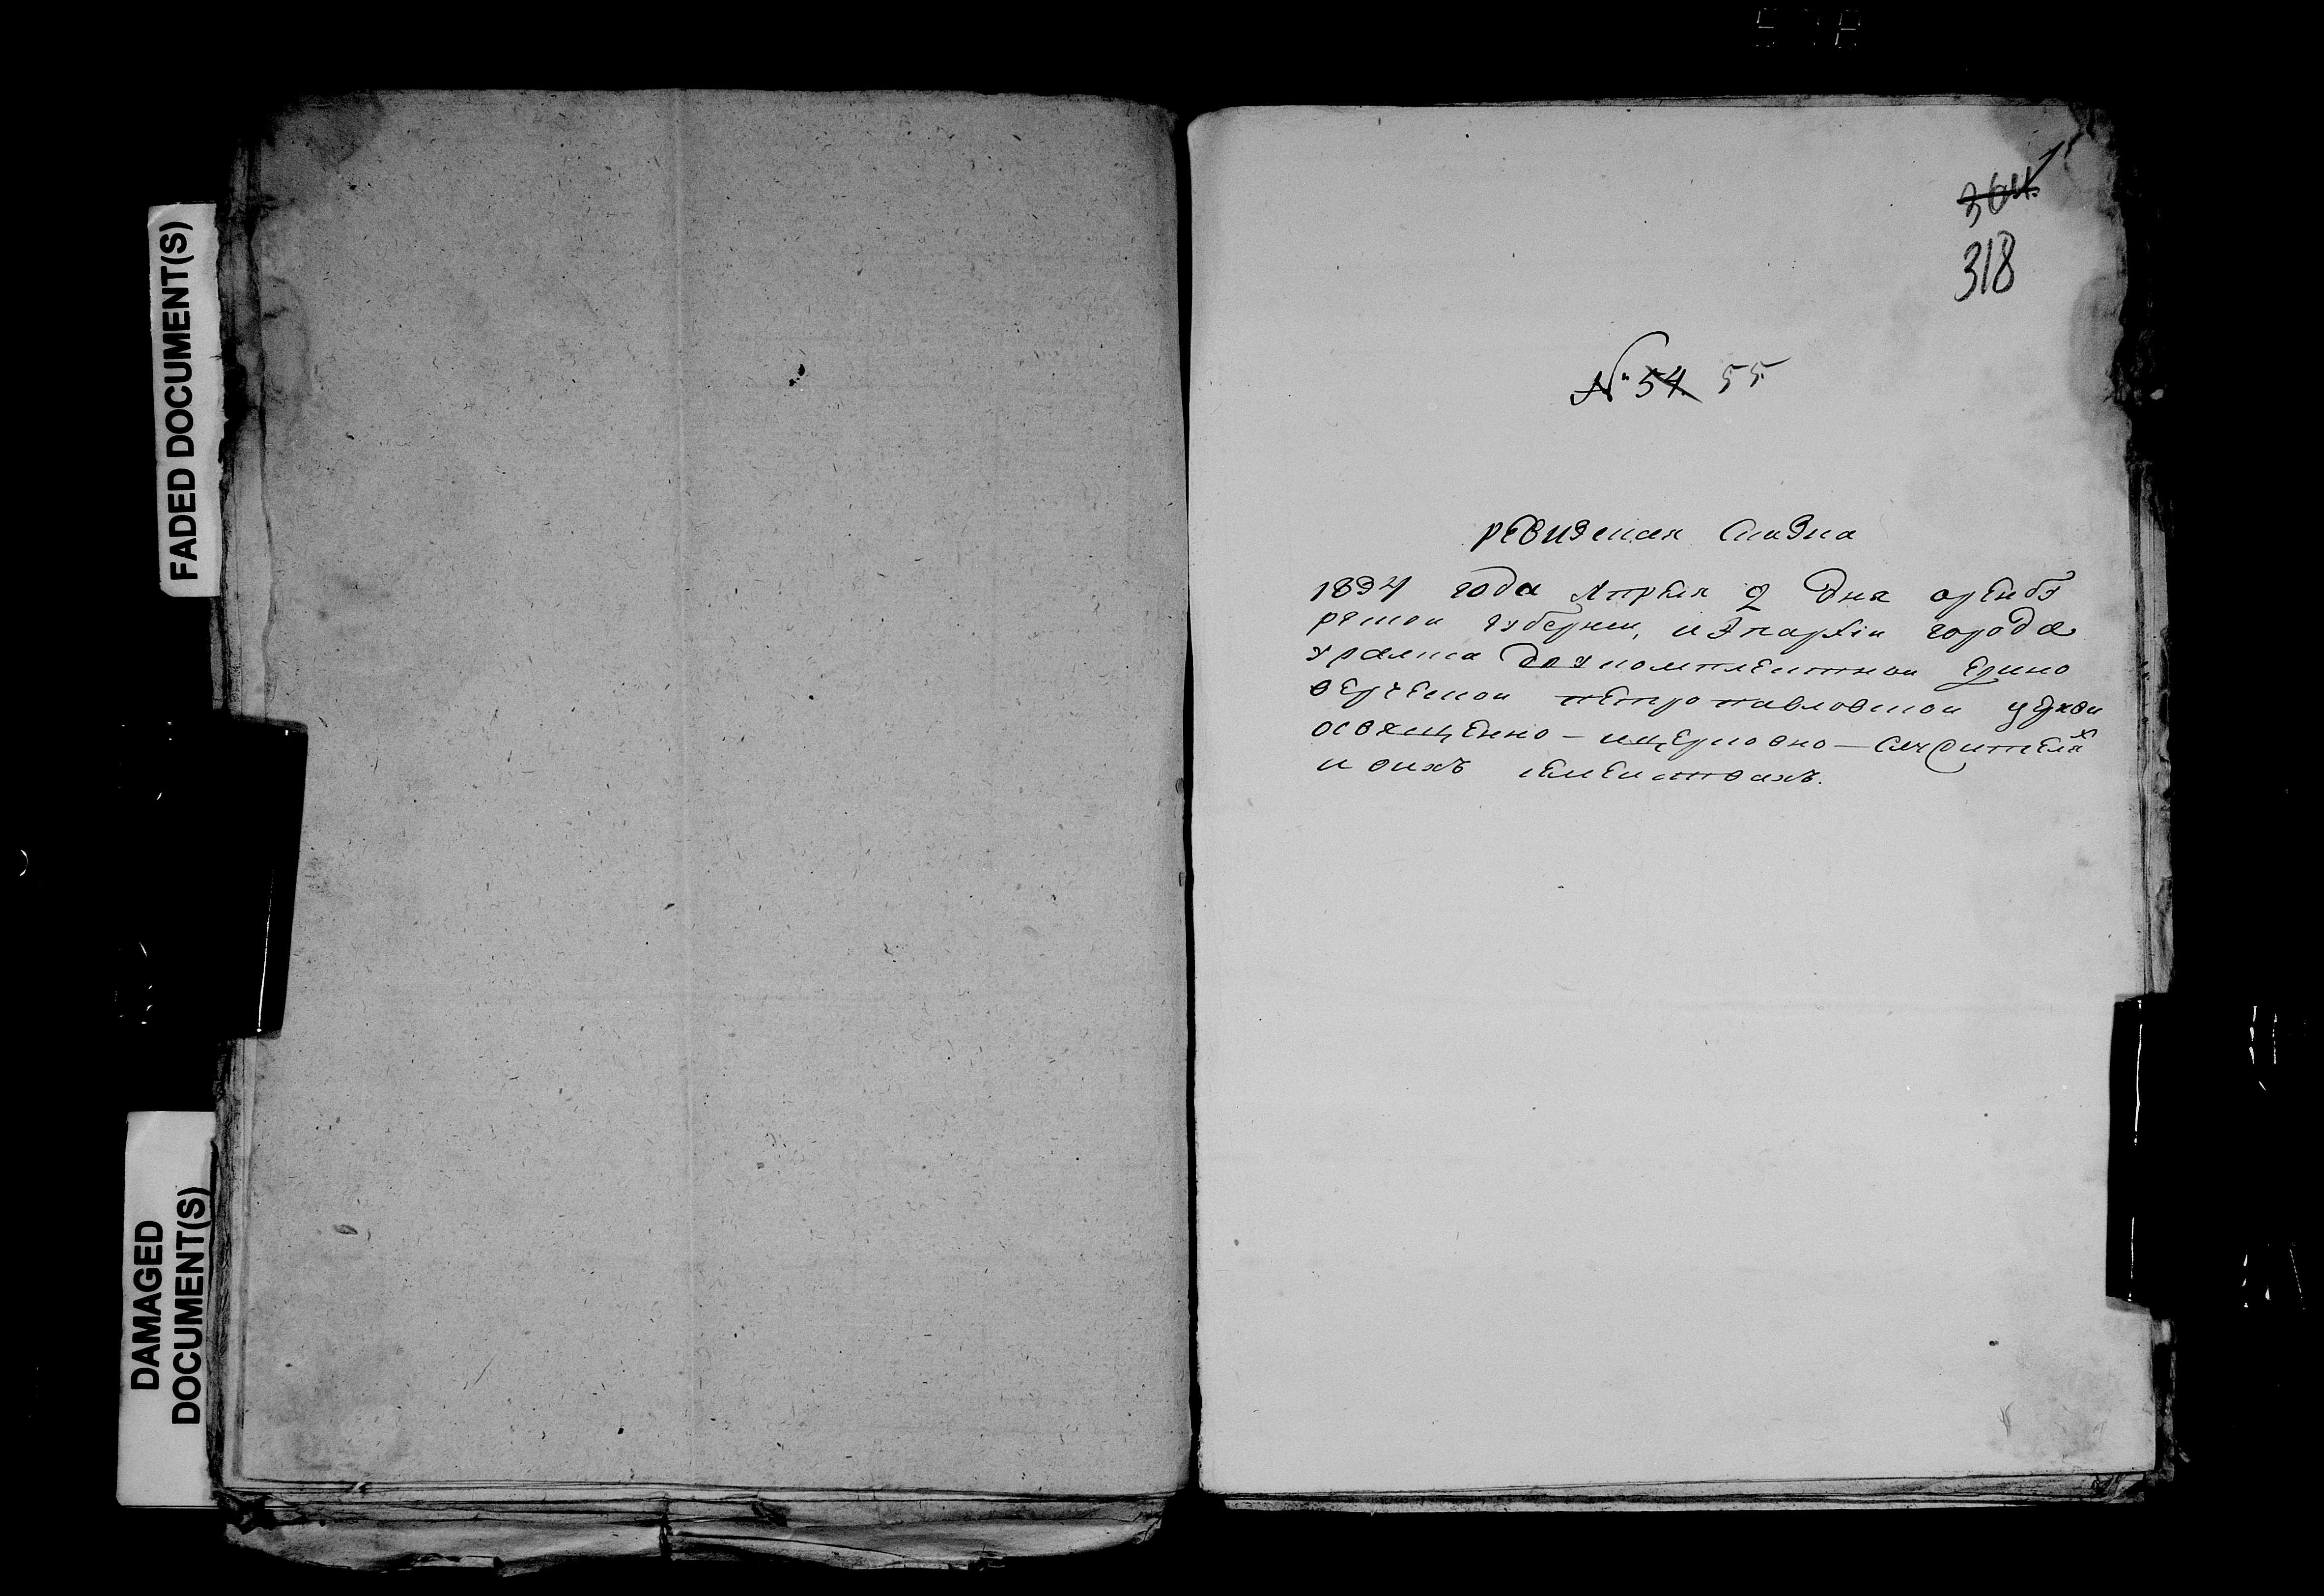 FADED DOCUMENT(S)
DAMAGED
DOCUMENT(S)
364.
318
№ 54. 55
ревизская Сказка
1834 года Апреля 2 дня оренбу
ргской губернии, и Эпархiи города
уральска двухкомплектной Едино
верческой петропавловской церкви
освященно-ицерковно-Служителях
и оихъ семействахъ.